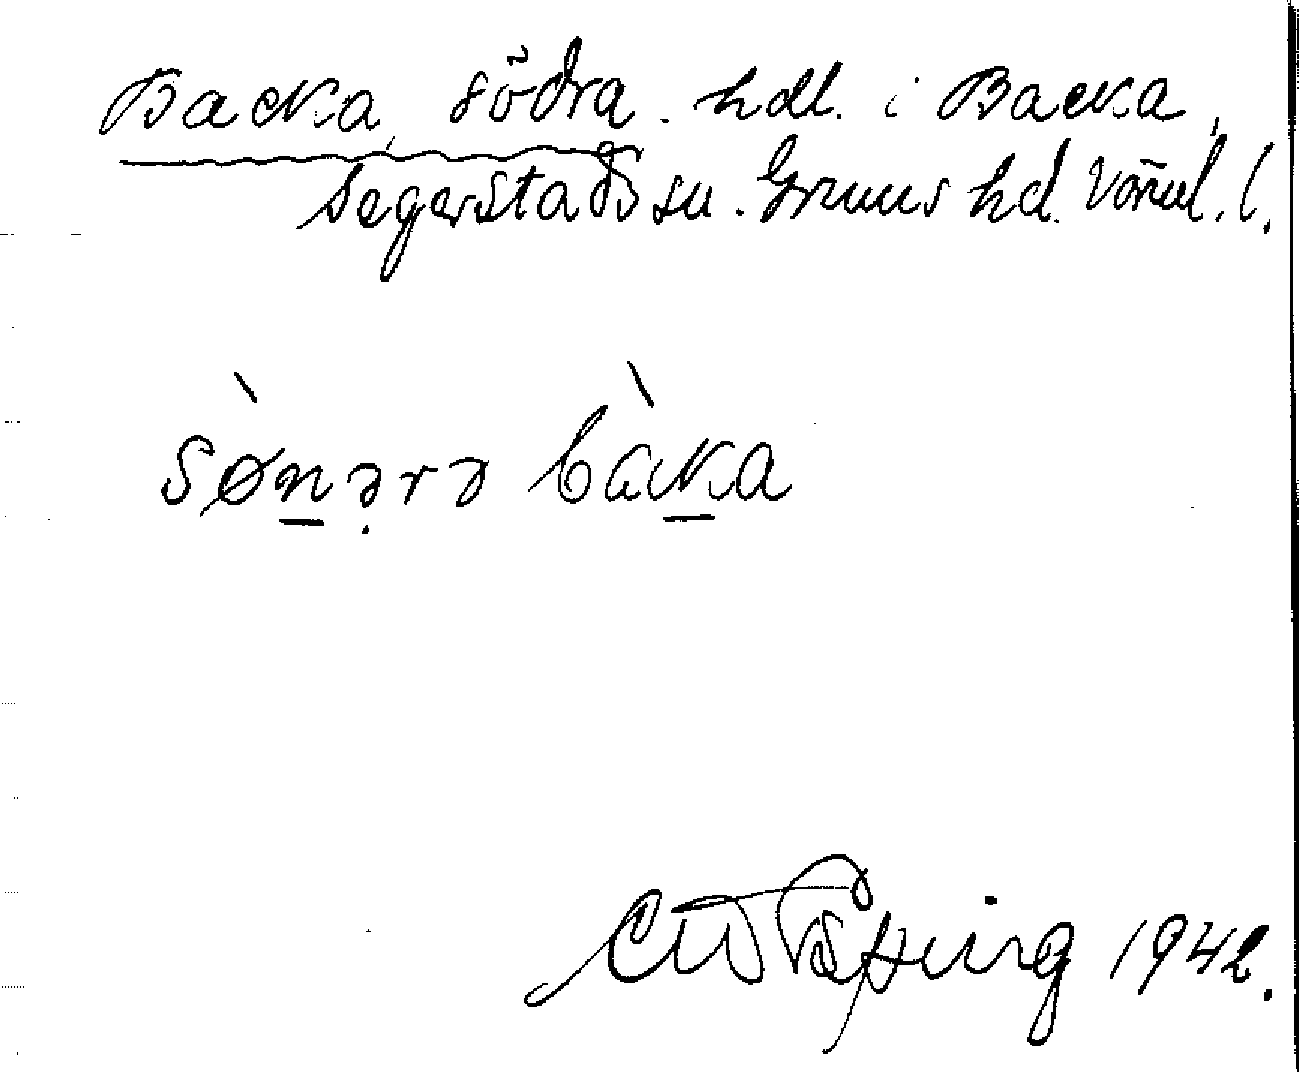 Backa, södra. hdl. i Backa,
Segerstads sn. Grums hd. Värml. l.
sø̀n̠ərə bàk̠a
1942.